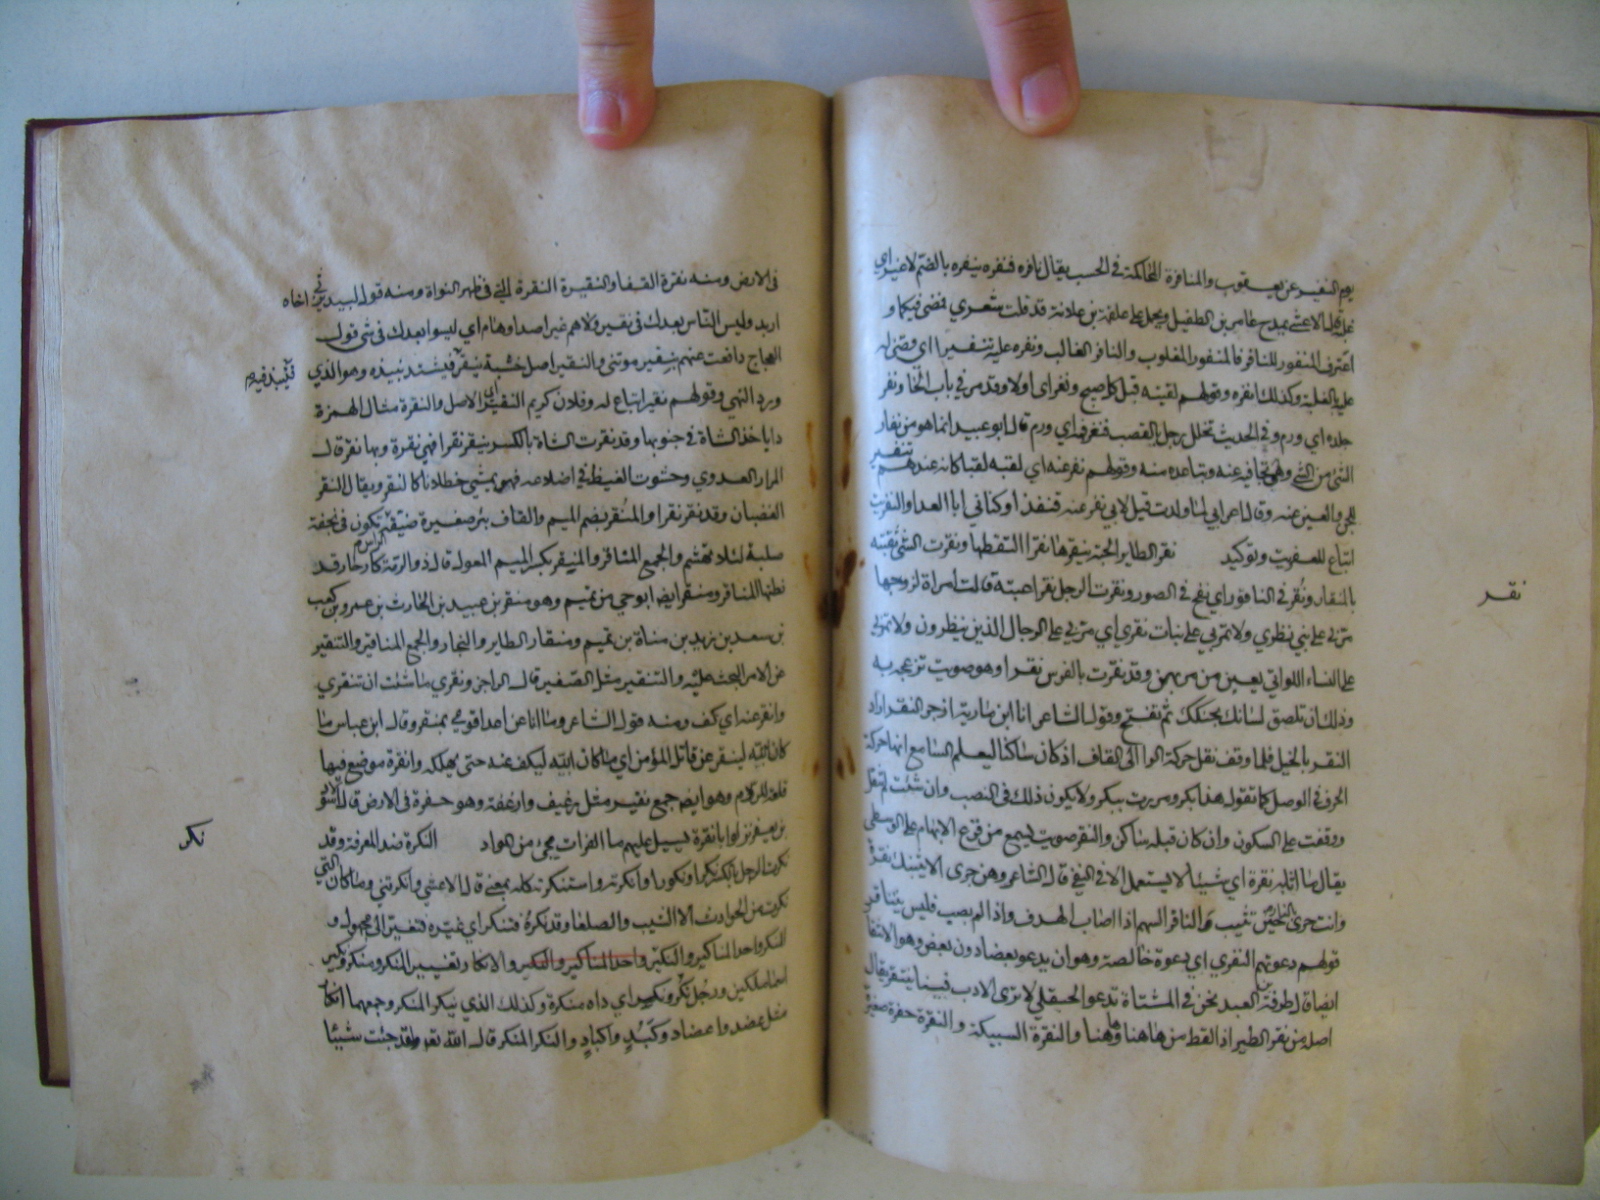 يوم النفير عن يعقوب والمنافرة المحاكمة في الحسب يقال نافره فنفره ينفره بالضم لا غير اي
غلبه قال الاعشى يمدح عامر بن الطفيل ويحمل على علقمة بن علاثة قد قلت شعري فمضى فيكما و
اعترف المنفور للنافر فالمنفور المغلوب والنافر الغالب ونفره عليه تنفيرا اي قضى له
عليه بالغلبة وكذلك انفره وقولهم لقيته قبل كل صيح ونفر اي اولا وقد مر في باب الخا ونفر
جلده اي ورم وفي الحديث تخلل رجل بالقصب فنفر فمه اي ورم قال ابو عبيد انما هو من نفار
الشئ من الشئ وهو تجافيه عنه وتباعده منه وقولهم نفر عنه اي لقبه لقبا كانه عندهم تنفير
للجن والعين عنه وقال اعرابي لما ولدت قيل لابي نفر عنه فسماني قنفذا وكناني ابا العداء والنفريت
اتباع للعفريت وتوكيد نقر الطاير الحبة ينقرها نقرا التقطها ونقرت الشئ ثقبته
نقر
بالمنقار ونقر في الناقور اي نفخ في الصور ونقرت الرجل نقرا عبته قالت امراة لزوجها
مر بي على بني نظري ولا تمر بي على بنات نقري اي مر بي على الرجال الذين ينظرون ولا تمر بي
على النساء اللواتي يعبن من مر بهن وقد نقرت بالفرس نقرا وهو صويت تزعجه به
وذلك ان تلصق لسانك بحنكك ثم تفتح وقول الشاعر انا ابن ماوية اذ جد النقر اراد
النقر بالخيل فلما وقف نقل حركة الرا الى القاف اذ كان ساكنا ليعلم السامع انها حركة
الحرف في الوصل كما تقول هذا بكر ومررت ببكر ولا يكون ذلك في النصب وان شئت لم تنقل
ووقفت على السكون وان كان قبله ساكن والنقر صويت يسمع من قرع الابهام على الوسطى
يقال ما اثابه نقرة اي شيئا لا يستعمل الا في النفي قال الشاعر وهن حرى الا يثبنك نقرة
وانت حرى بالنار حين تثيب والناقر السهم اذا اصاب الهدف واذا لم يصب فليس بناقر
قولهم دعوتهم النقرى اي دعوة خاصة وهو ان يدعو بعضا دون بعض وهو الانتقار
ايضا قال طرفة بن العبد نحن في المشتاة ندعو الجفلى لا ترى الادب فينا ينتقر يقال
اصله من نقر الطير اذا لقط من هاهنا وهاهنا والنقرة السبيكة والنقرة حفرة صغيرة
في الارض ومنه نقرة القفا والنقيرة النقرة التي في ظهر النواة ومنه قول لبيد يرثي اخاه
اربد وليس الناس بعدك في نقير ولا هم غير اصداء وهام اي ليسوا بعدك في شئ قول
العجاج دافعت عنهم بنقير موتتي والنقير اصل خشبة ينقر فيشتد نبيذه وهو الذي
فينبذ فيه
ورد النهي وقولهم نقير اتباع له وفلان كريم النقير اي الاصل والنقرة مثال الهمزة
دا ياخذ الشاة في جنوبها وقد نقرت الشاة بالكسر ينقر نقرا فهي نقرة وبها نقرة قال
المرار العدوي وحشوت الغيظ في اضلاعه فهو يمشي خظلانا كالنقر ويقال النقر
الغضبان وقد نقر نقرا والمنقر بضم الميم والقاف بئر صغيرة ضيقة الراس تكون في نجفة
صلبة لئلا تهشم والجمع المناقر والمنقر بكسر الميم المعول قال ذو الرمة كارحاء رقد
زلمتها المناقر ومنقر ايضا ابو حي من تميم وهو منقر بن عبيد بن الحارث بن عمرو بن كعب
بن سعد بن زيد بن مناة بن تميم ومنقار الطاير والنجار والجمع المناقير والتنقير
عن الامر البحث عليه والتنقير مثل الصفير قال الراجز ونقري ما شئت ان تنقري
وانقر عنه اي كف ومنه قول الشاعر وما انا عن اعداء قومي بمنقر وقال ابن عباس ما
كان الله لينقر عن قاتل المؤمن اي ما كان الله ليكف عنه حتى يهلكه وانقرة موضع فيها
قلعة للروم وهو ايضا جمع نقير مثل رغيف وارغفة وهو حفرة في الارض قال الاسود
بن يعفر نزلوا بانقرة يسيل عليهم ماء الفرات يجئ من اطواد النكرة ضد المعرفة وقد
نكر
نكرت الرجل بالكسر نكرا ونكورا وانكرته واستنكرته كله بمعنى قال الاعشى وانكرتني وما كان الذي
نكرت من الحوادث الا الشيب والصلعا وقد نكره فتنكر اي غيره فتغير الى مجهول و
المنكر واحد المناكير والنكير واحد المناكير والنكير والانكار تغيير المنكر ومنكر ونكير
اسما ملكين ورجل نكر ونكر اي داه منكرة وكذلك الذي ينكر المنكر وجمعهما انكار
مثل عضد واعضاد وكبد واكباد والنكر المنكر قال الله تعالى لقد جئت شيئا